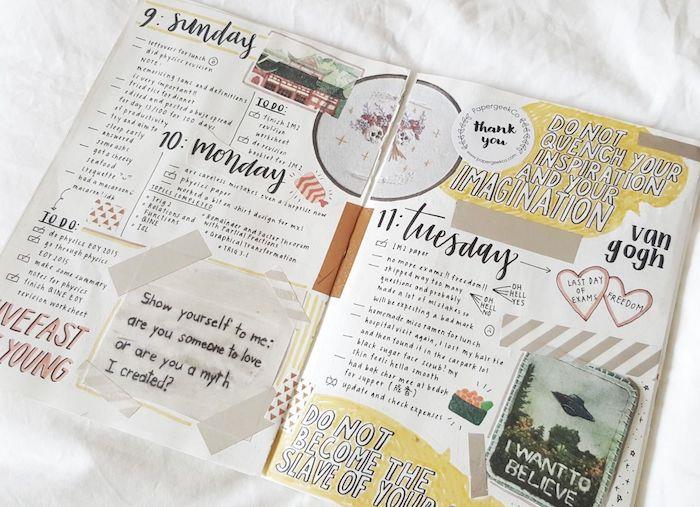 9: sunday
leftovers for lunch
did physics revision
NOTE:
memorising laws and definitions
is very important!!
fried rice for dinner
edited and posted abujo spread
for day 13/100 for 100 days
of productivity
try and aim to
sleep early
answered
somi asks
ate cheesy
seafood
croquette
had a macaron
TO DO:
finish IM2
revision
worksheet
do revision
booklet for IM2
TO DO:
do physics EOY 2015
go through physics
EOY 2015
make some summary
notes for physics
finish QINE EOY
revision worksheet
LIVE FAST
YOUNG
10: monday
are careless mistakes even a surprise now
physics paper
worked a bit on shirt design for mxl
TOPICS COMPLETED
Trig 2
Relations and
Functions
QINE
IOL
Remainder and Factor Theorem
with Partial Fractions
Graphical Transformation
TRIG 3.1
Show yourself to me:
are you someone to love
or are you a myth
I created?
PapergeekCo
thank
you
www.papergeekco.com
DO NOT
QUENCH YOUR
INSPIRATION
AND YOUR
IMAGINATION
van
gogh
11: tuesday
IM2 paper
no more exams!! freedom!!
skipped way too many
questions and probably
made a lot of mistakes so
will be expecting a bad mark
OH
HELL
YES
OH
HELL
NO
homemade miso ramen for lunch
hospital visit again, i lost my hair tie
and then found it in the carpark lol
black sugar face scrub! my
skin feels hella smooth
had bak chor mee at bedok
for supper
update and check expenses
LAST DAY
OF
EXAMS
FREEDOM
I WANT TO
BELIEVE
DO NOT
BECOME THE
SLAVE OF YOUR